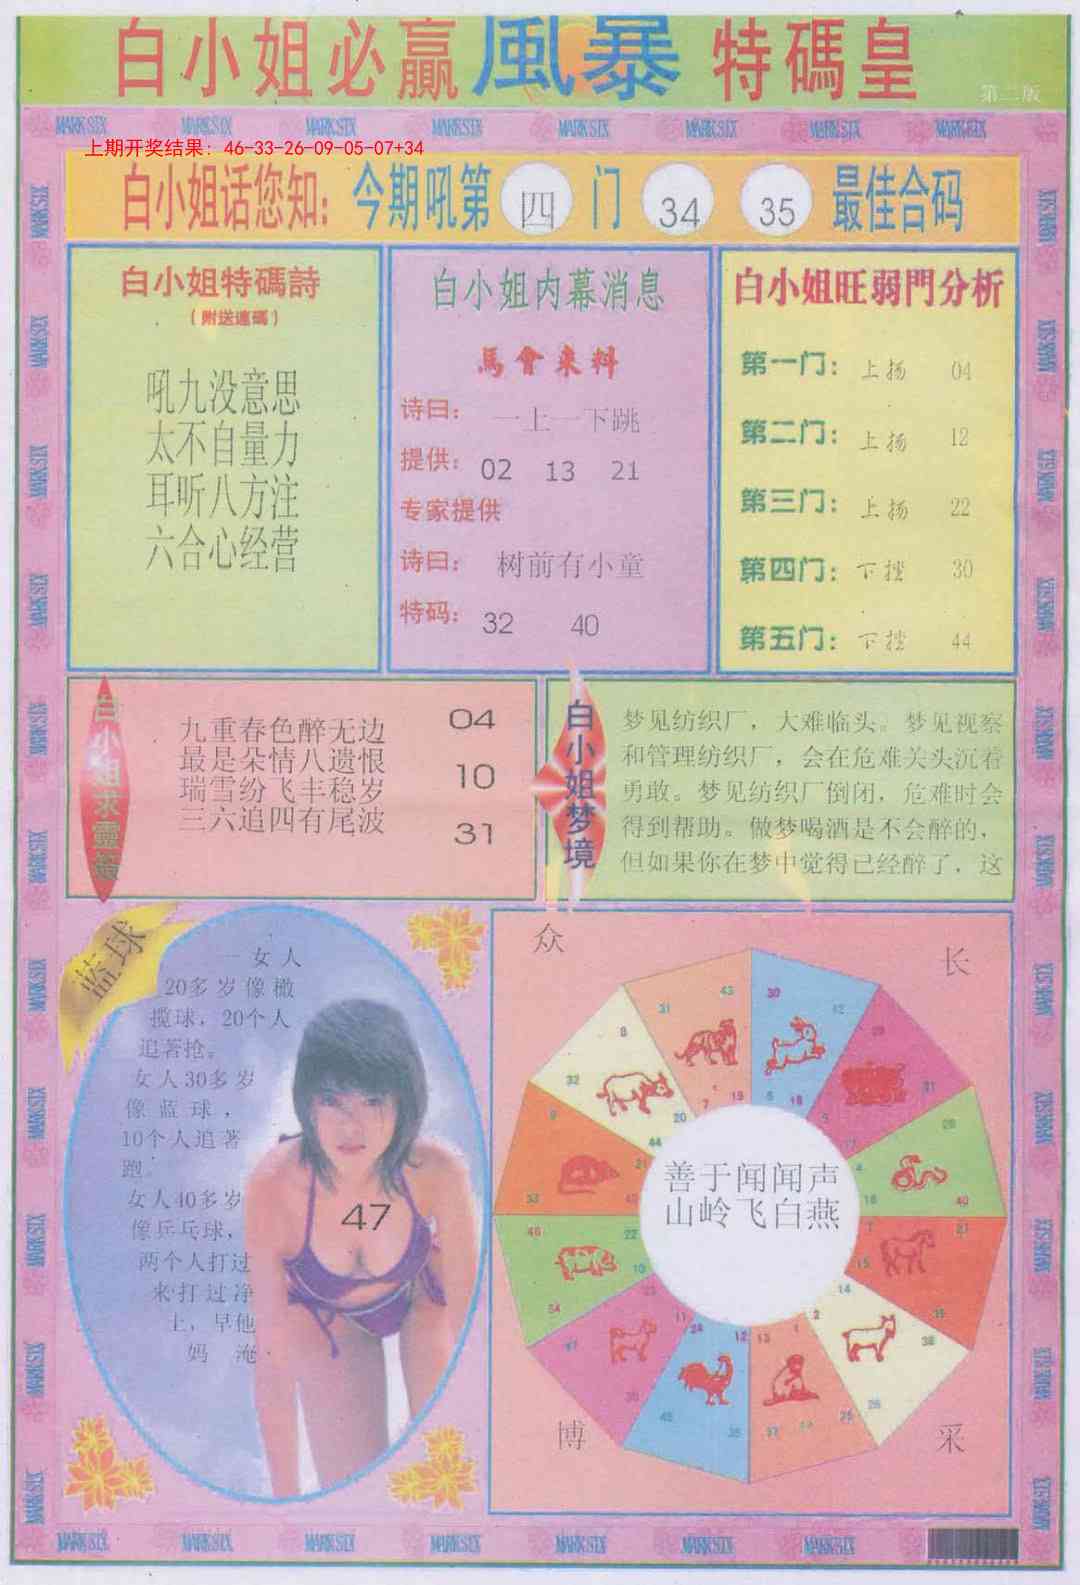 白小姐必贏 風暴 特碼皇
第二版
MARK SIX MARK SIX MARK SIX MARK SIX MARK SIX MARK SIX MARK SIX MARK SIX
上期开奖结果：46-33-26-09-05-07+34
白小姐话您知：今期吼第 四 门 34 35 最佳合码
白小姐特碼詩
（附送連碼）
吼九没意思
太不自量力
耳听八方注
六合心经营
白小姐内幕消息
馬會来料
诗曰： 一上一下跳
提供： 02 13 21
专家提供
诗曰： 树前有小童
特码： 32 40
白小姐旺弱門分析
第一门：上扬 04
第二门：上扬 12
第三门：上扬 22
第四门：下挫 30
第五门：下挫 44
九重春色醉无边
最是朵情八遗恨
瑞雪纷飞丰稳岁
三六追四有尾波
04
10
31
白小姐梦境
梦见纺织厂，大难临头。梦见视察
和管理纺织厂，会在危难关头沉着
勇敢。梦见纺织厂倒闭，危难时会
得到帮助。做梦喝酒是不会醉的，
但如果你在梦中觉得已经醉了，这
蓝球
一女人
20多岁像橄
揽球，20个人
追著抢。
女人30多岁
像蓝球，
10个人追著
跑。
女人40多岁
像乒乓球，
两个人打过
来打过净
上，早他
妈 淹
47
众
长
善于闻闻声
山岭飞白燕
博
采
MARK SIX MARK SIX MARK SIX MARK SIX MARK SIX MARK SIX MARK SIX